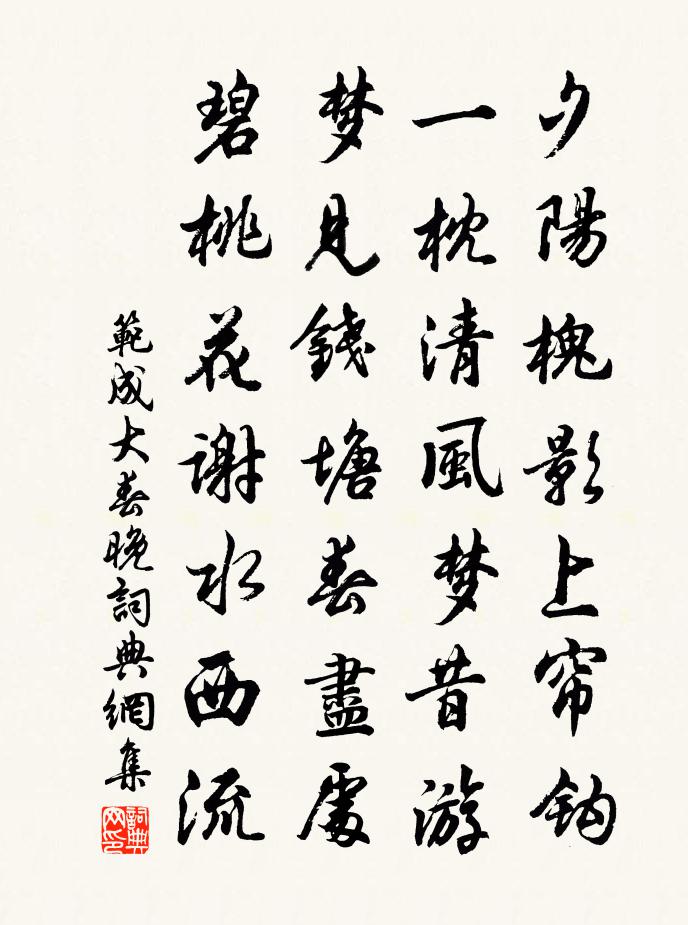 夕陽槐影上帘鈎
一枕清風梦昔游
梦見錢塘春盡處
碧桃花謝水西流
範成大春晚詞典網集
詞典网印